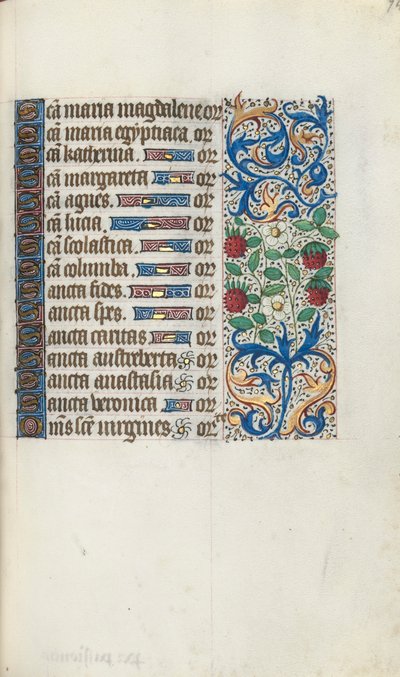 Scã maria magdalene or
Scã maria egyptiaca or
Scã katherina. or
Scã margareta or
Scã agnes. or
Scã lucia. or
Scã scolastica. or
Scã columba. or
Sancta fides. or
Sancta spes. or
Sancta caritas or
Sancta austreberta or
Sancta anastasia or
Sancta veronica or
Om̃s scẽ virgines. or